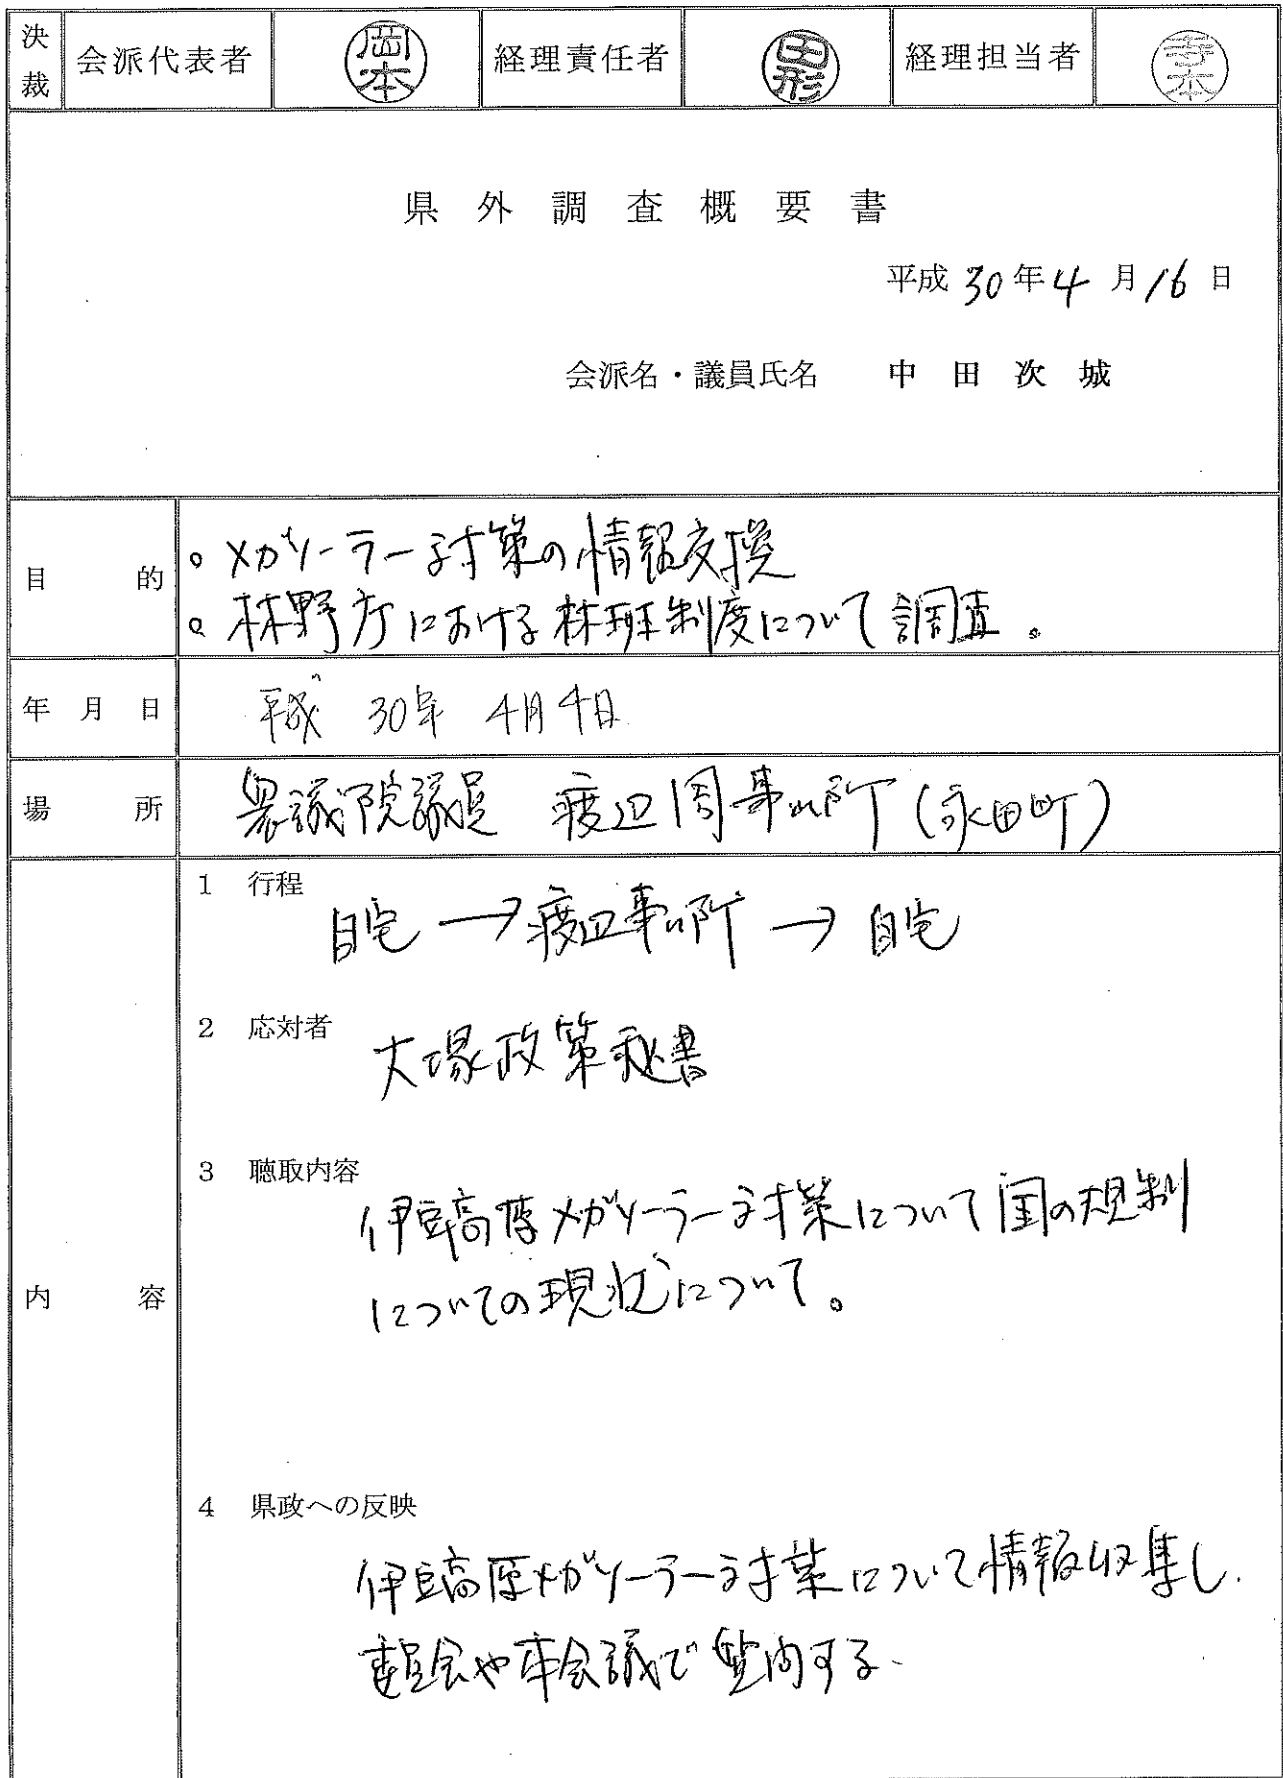 決裁 会派代表者 岡本 経理責任者 田形 経理担当者 寺本
県外調査概要書
平成30年4月16日
会派名・議員氏名 中田次城
目的
。メガソーラー対策の情報交換
。林野庁における林班制度について調査。
年月日 平成30年4月4日
場所 衆議院議員 渡辺周事務所(永田町)
内容
1 行程
自宅→渡辺事務所→自宅
2 応対者
大塚政策秘書
3 聴取内容
伊豆高原メガソーラー対策について国の規制
についての現状について。
4 県政への反映
伊豆高原メガソーラー対策について情報収集し、
委員会や本会議で質問する。